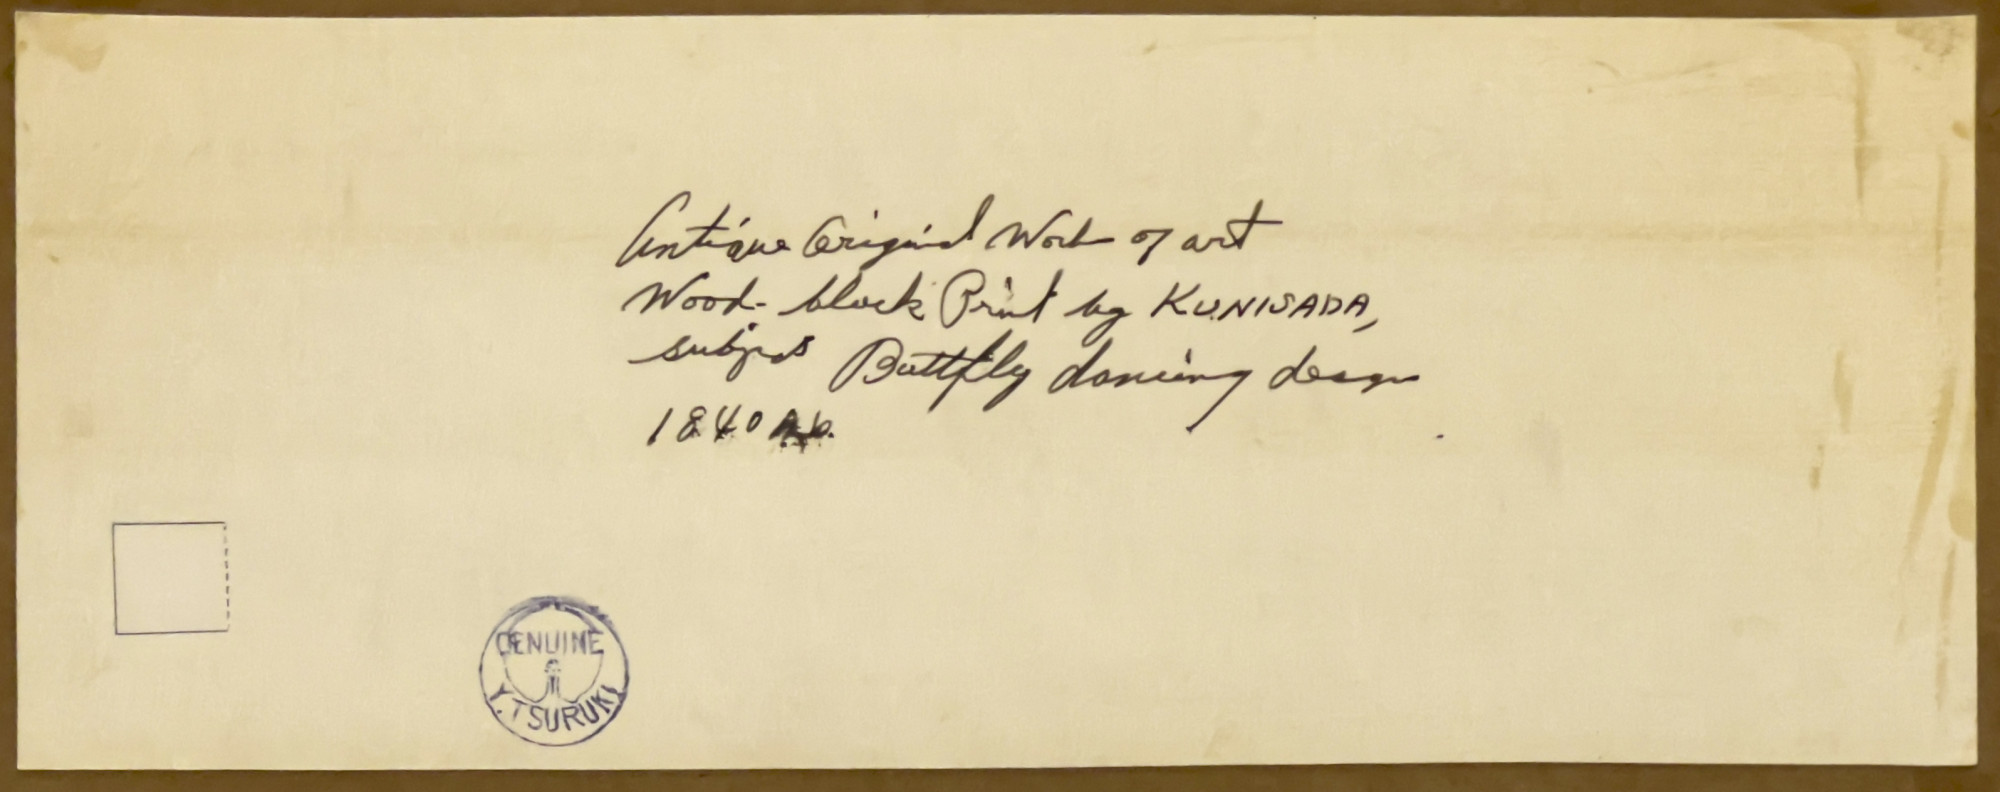 Antique Original Work of art
Wood-block Print by KUNISADA,
subject Buttfly dancing design
1840 A.D.
GENUINE
Y. TSURUKI